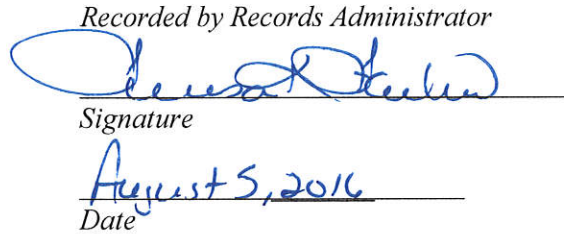 Recorded by Records Administrator
Signature
August 5, 2016
Date